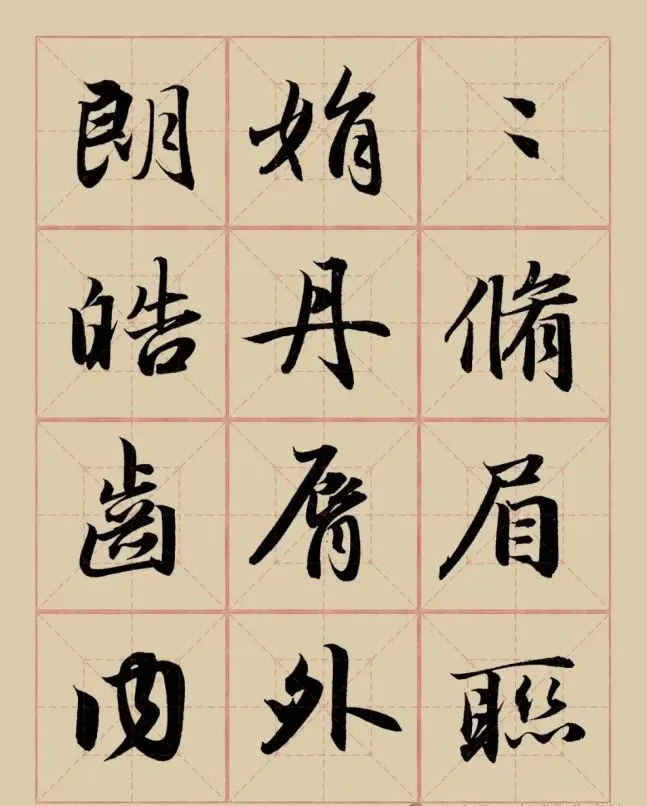 〻脩眉聯
娟丹脣外
朗皓齒内